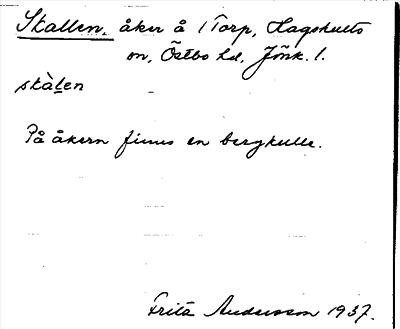 Skallen, åker å 1 Torp, Hagshults
sn, Östbo hd, Jönk. l.
skàlen
På åkern finns en bergkulle.
Fritz Andersson 1937.